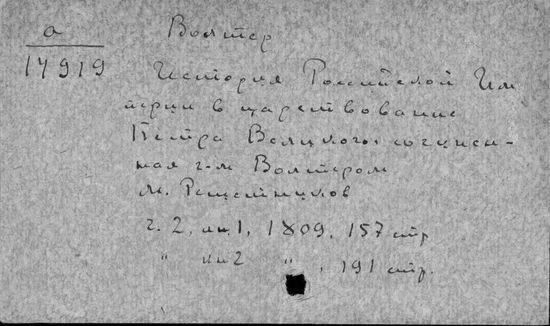 а
17919
Вольтер
История Российской Им
перии в царствование
Петра Великого, сочинен-
ная г-м Вольтером
М. Решетников
ч. 2, кн. 1, 1809, 157 стр
" кн 2 " , 191 стр.